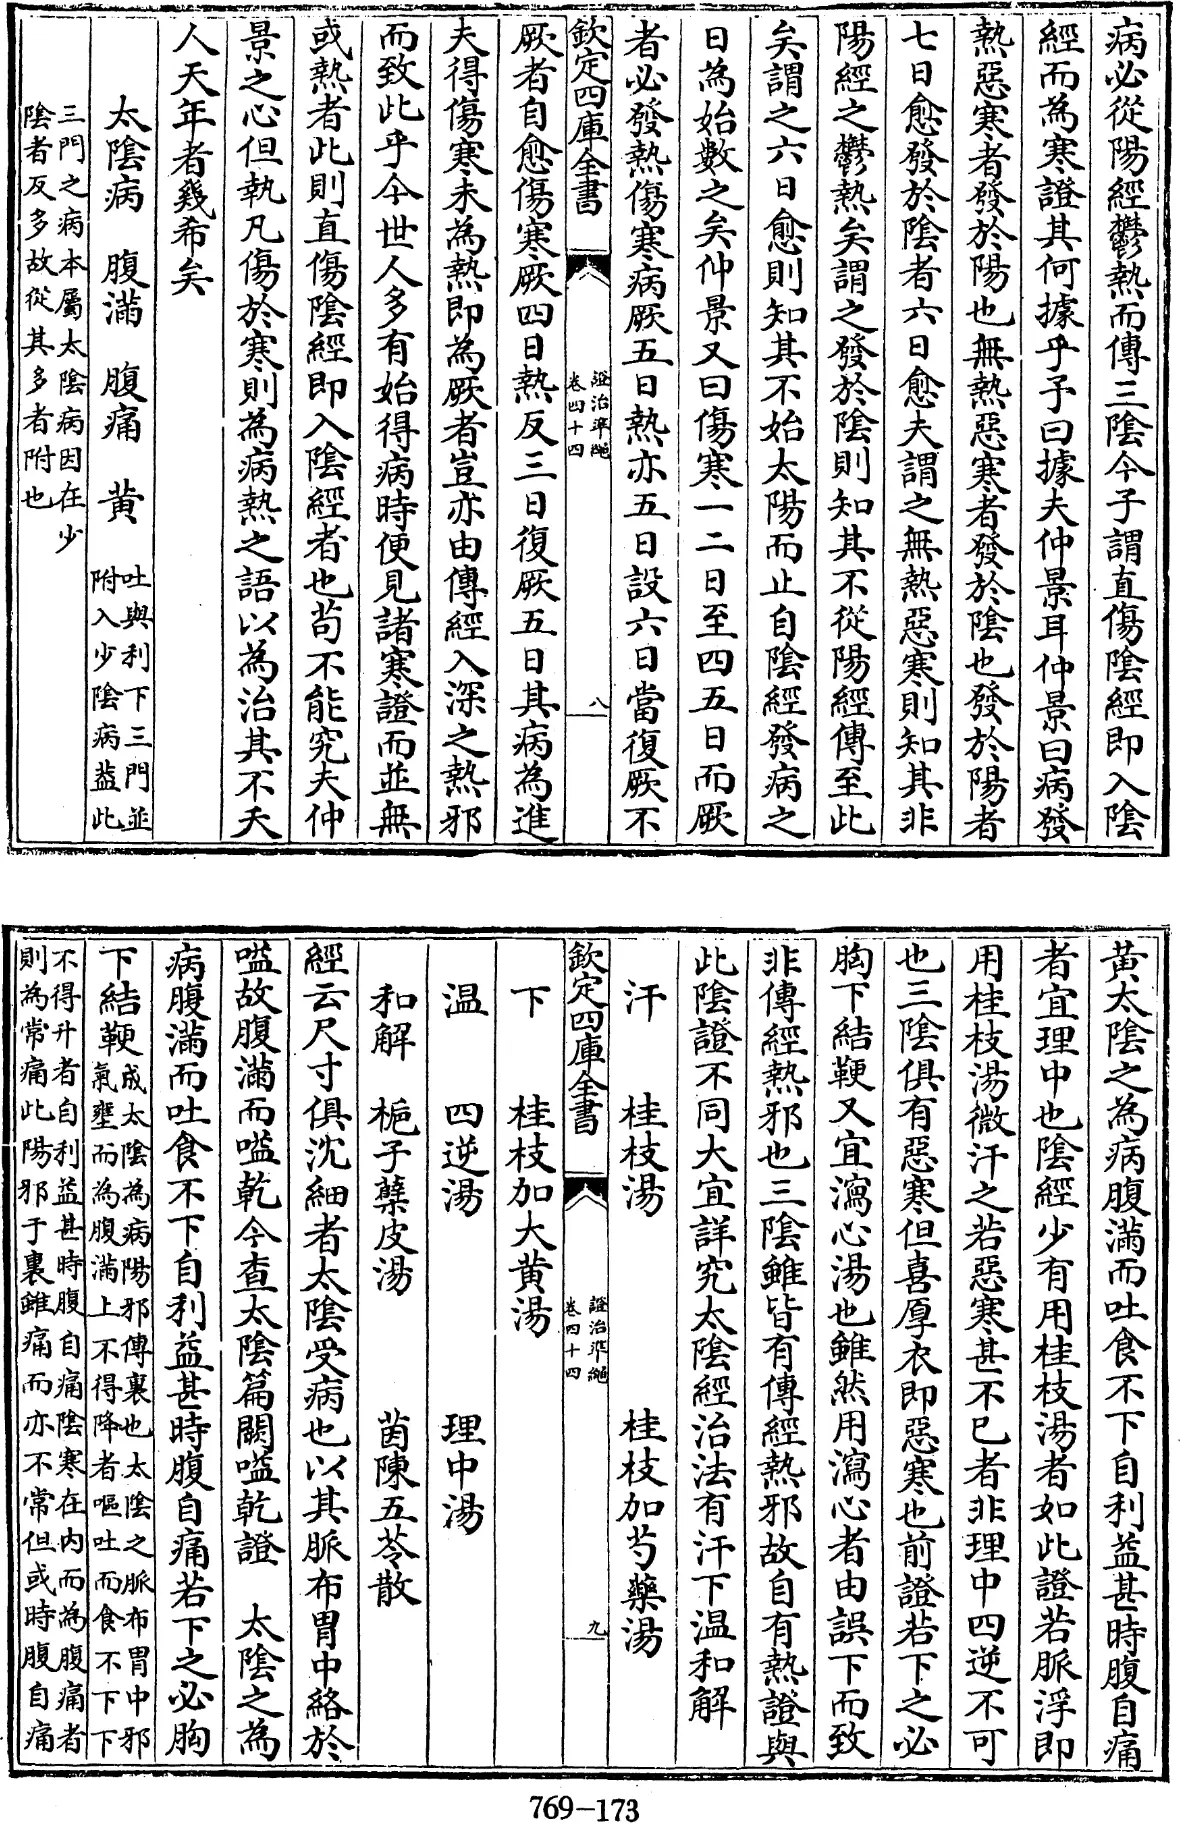 病必從陽經鬱熱而傳三陰今子謂直傷陰經即入陰
經而為寒證其何據乎予曰據夫仲景耳仲景曰病發
熱惡寒者發於陽也無熱惡寒者發於陰也發於陽者
七日愈發於陰者六日愈夫謂之無熱惡寒則知其非
陽經之鬱熱矣謂之發於陰則知其不從陽經傳至此
矣謂之六日愈則知其不始太陽而止自陰經發病之
日為始數之矣仲景又曰傷寒一二日至四五日而厥
者必發熱傷寒病厥五日熱亦五日設六日當復厥不
欽定四庫全書
證治準繩
卷四十四
八
厥者自愈傷寒厥四日熱反三日復厥五日其病為進
夫得傷寒未為熱即為厥者豈亦由傳經入深之熱邪
而致此乎今世人多有始得病時便見諸寒證而並無
或熱者此則直傷陰經即入陰經者也茍不能究夫仲
景之心但執凡傷於寒則為病熱之語以為治其不夭
人天年者幾希矣
太陰病 腹滿 腹痛 黃
吐與利下三門並
附入少陰病葢此
三門之病本屬太陰病因在少
陰者反多故從其多者附也
黃太陰之為病腹滿而吐食不下自利益甚時腹自痛
者宜理中也陰經少有用桂枝湯者如此證若脈浮即
用桂枝湯微汗之若惡寒甚不已者非理中四逆不可
也三陰俱有惡寒但喜厚衣即惡寒也前證若下之必
胸下結鞕又宜瀉心湯也雖然用瀉心者由誤下而致
非傳經熱邪也三陰雖皆有傳經熱邪故自有熱證與
此陰證不同大宜詳究太陰經治法有汗下温和解
汗 桂枝湯 桂枝加芍藥湯
欽定四庫全書
證治準繩
卷四十四
九
下 桂枝加大黃湯
温 四逆湯 理中湯
和解 梔子蘗皮湯 茵陳五苓散
經云尺寸俱沈細者太陰受病也以其脈布胃中絡於
嗌故腹滿而嗌乾今查太陰篇闕嗌乾證 太陰之為
病腹滿而吐食不下自利益甚時腹自痛若下之必胸
下結鞕
成太陰為病陽邪傳裏也太陰之脈布胃中邪
氣壅而為腹滿上不得降者嘔吐而食不下下
不得升者自利益甚時腹自痛陰寒在内而為腹痛者
則為常痛此陽邪于裏雖痛而亦不常但或時腹自痛
769-173